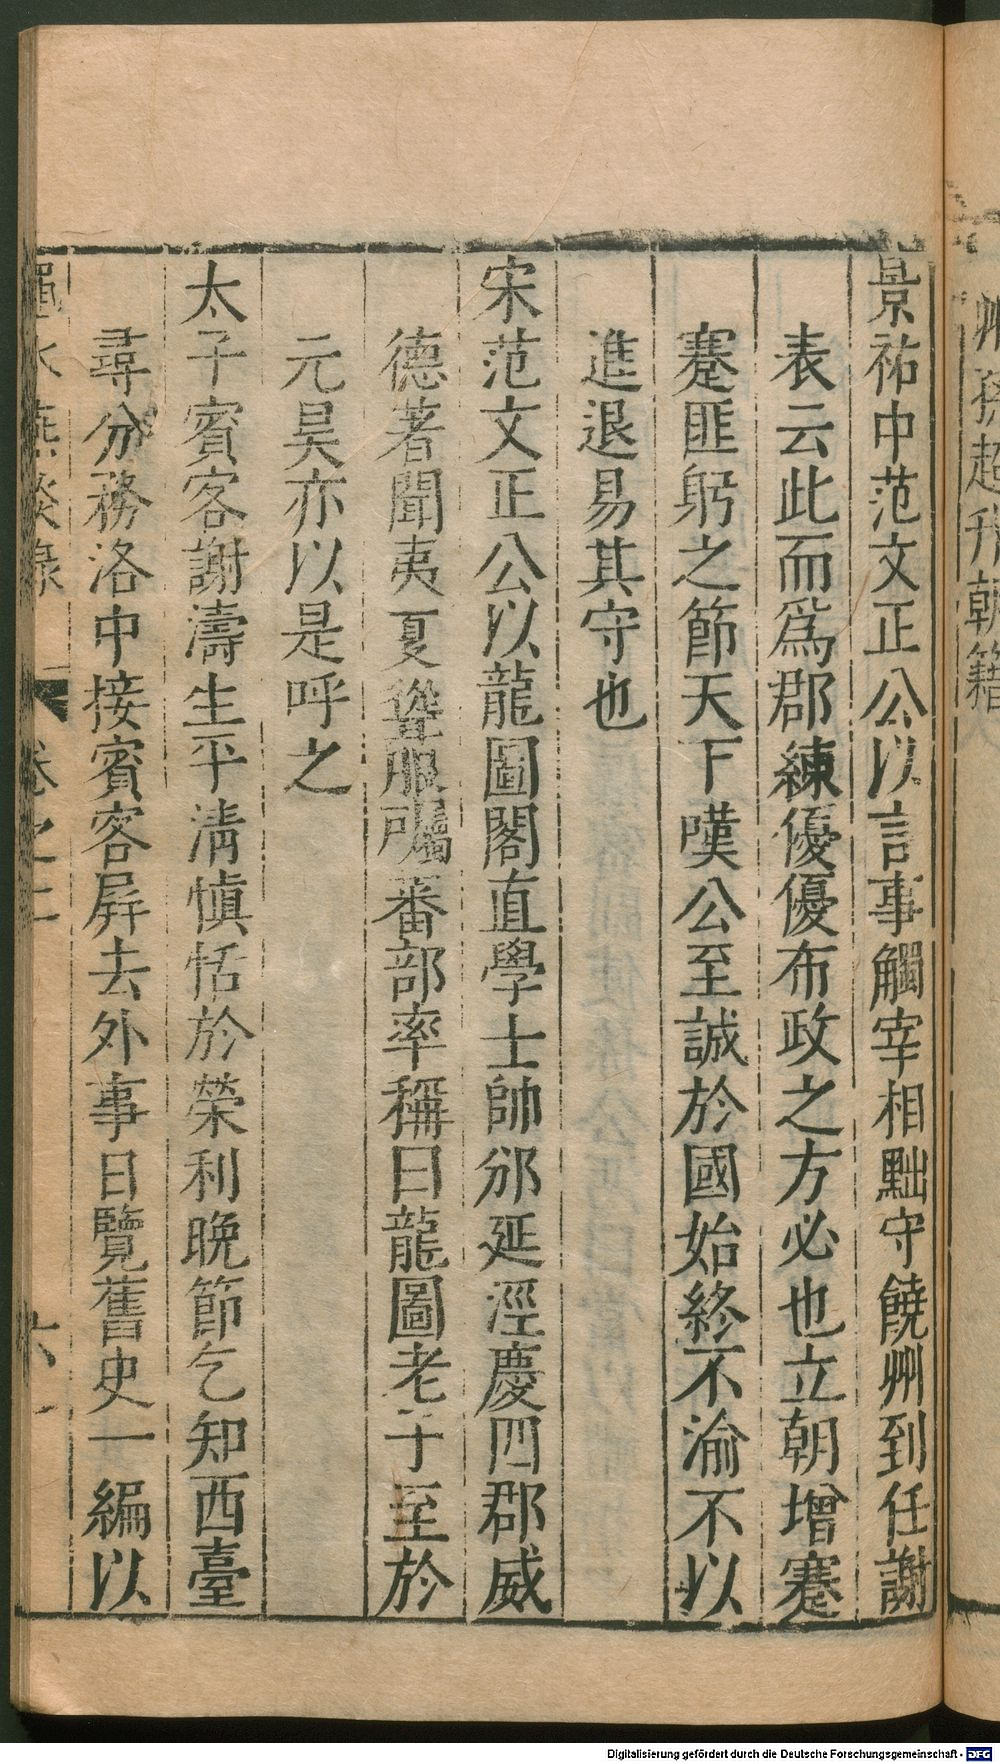 州孫超升朝籍
景祐中范文正公以言事觸宰相黜守饒州到任謝
表云此而爲郡練優優布政之方必也立朝增蹇
蹇匪躬之節天下嘆公至誠於國始終不渝不以
進退易其守也
宋范文正公以龍圖閣直學士帥邠延涇慶四郡威
德著聞夷夏聳服屬番部率稱曰龍圖老子至於
元昊亦以是呼之
太子賓客謝濤生平清慎恬於榮利晚節乞知西臺
尋分務洛中接賓客屏去外事日覽舊史一編以
澠水燕談錄 卷之二 六
Digitalisierung gefördert durch die Deutsche Forschungsgemeinschaft - DFG